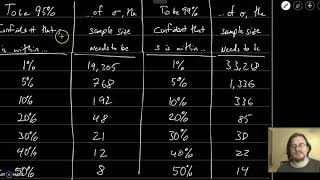 To be 95% ...of σ, the To be 99% ...of σ, the
Confident that sample size Confident that sample size
s is within... needs to be s is within... needs to be
1% 19,205 1% 33,218
5% 768 5% 1,336
10% 192 10% 336
20% 48 20% 85
30% 21 30% 38
40% 12 40% 22
50% 8 50% 14